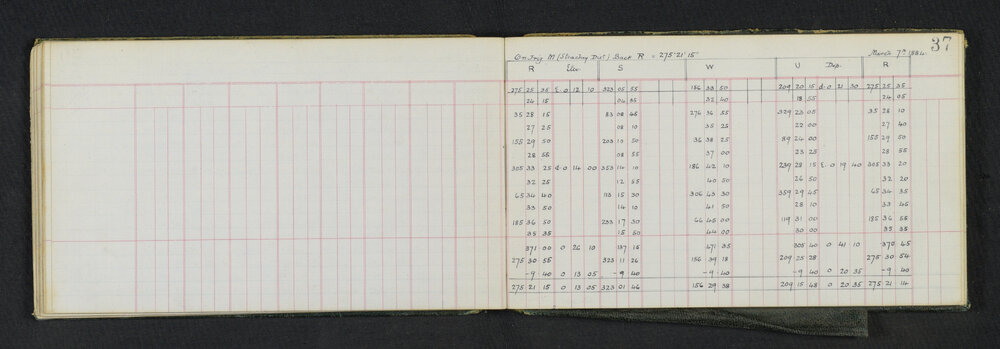 37
On Trig M (Strachey Dist) Back R = 275° 21' 15" March 7th 1884
R Elev S W U Dep. R
275 25 35 E. 0 12 10 323 05 55 186 38 50 209 20 15 d. 0 21 30 275 25 35
24 15 04 35 32 40 18 55 24 05
35 28 15 83 08 45 276 36 55 329 23 05 35 28 10
27 25 08 10 35 25 22 00 27 40
155 29 50 203 10 50 36 38 25 89 24 00 155 29 50
28 55 08 55 37 00 23 25 28 55
305 33 25 d. 0 14 00 353 14 10 186 42 10 239 28 15 E. 0 19 40 305 33 20
32 25 12 55 40 50 26 50 32 20
65 34 40 113 15 30 306 43 30 359 29 45 65 34 35
33 50 14 10 41 50 28 10 33 45
185 36 50 233 17 30 66 45 00 119 31 00 185 36 55
35 35 15 50 44 00 30 00 35 35
371 00 0 26 10 137 15 471 35 305 40 0 41 10 370 45
275 30 55 323 11 26 156 39 18 209 25 28 275 30 54
-9 40 0 13 05 -9 40 -9 40 -9 40 0 20 35 -9 40
275 21 15 0 13 05 323 01 46 156 29 38 209 15 48 0 20 35 275 21 14